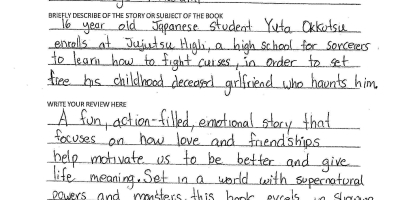 BRIEFLY DESCRIBE OF THE STORY OR SUBJECT OF THE BOOK
16 year old Japanese student Yuta Okkotsu
enrolls at Jujutsu High, a high school for sorcerers
to learn how to fight curses, in order to set
free his childhood deceased girlfriend who haunts him.
WRITE YOUR REVIEW HERE
A fun, action-filled, emotional story that
focuses on how love and friendships
help motivate us to be better and give
life meaning. Set in a world with supernatural
powers and monsters, this book excels in showing